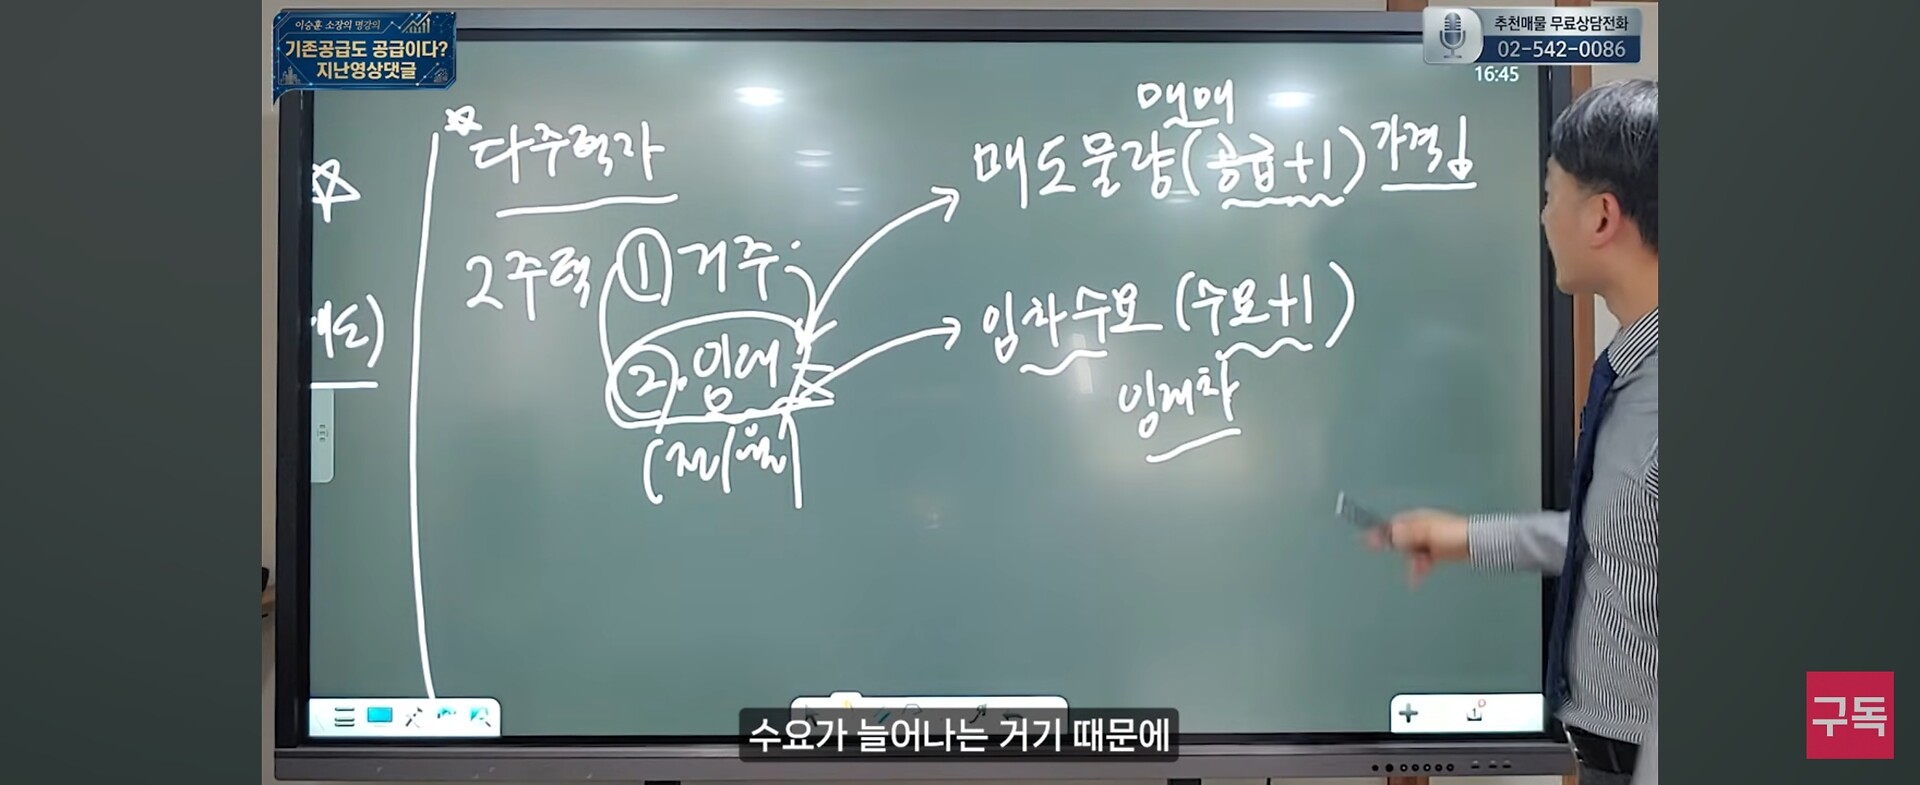 이승훈 소장의 명강의
기존공급도 공급이다?
지난영상댓글
추천매물 무료상담전화
02-542-0086
16:45
다주택자
2주택 ① 거주
② 임대
(전/월)
매매
매도물량(공급+1) 가격↓
임차수요 (수요+1)
임대차
수요가 늘어나는 거기 때문에
구독